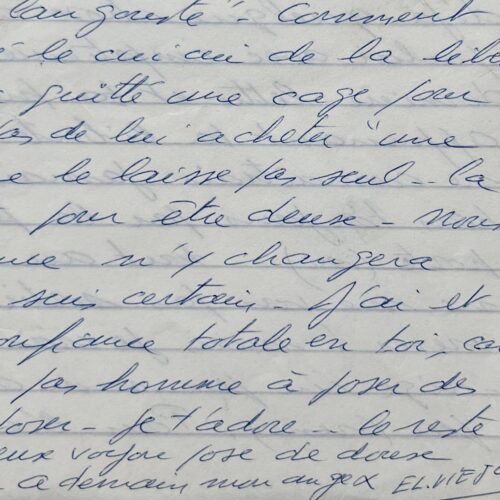 langouste". Comment
le cui cui de la libe
quitté une cage pour
pas de lui acheter "une
e le laisse pas seul - La
pour être deux - nous
n'y changera
suis certain - J'ai et
onfiance totale en toi, ca
pas homme à poser des
poser - je t'adore - le reste
eux voyou pose de douse
a demain mon ange EL.VIEJO